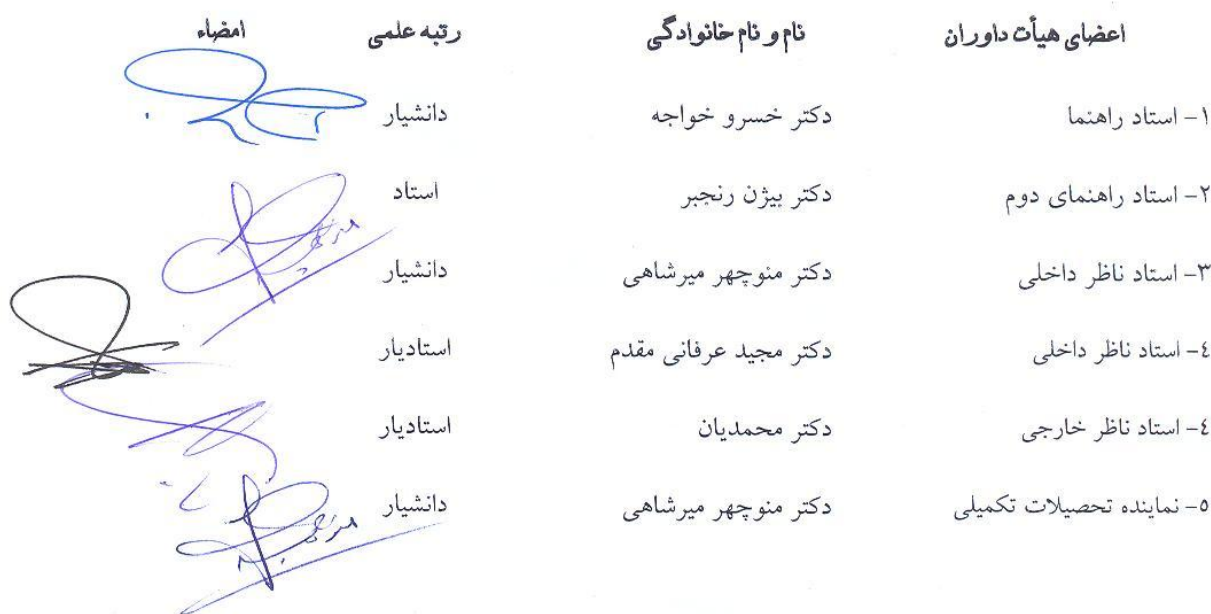 اعضای هیأت داوران نام و نام خانوادگی رتبه علمی امضاء
۱- استاد راهنما دکتر خسرو خواجه دانشیار
۲- استاد راهنمای دوم دکتر بیژن رنجبر استاد
۳- استاد ناظر داخلی دکتر منوچهر میرشاهی دانشیار
٤- استاد ناظر داخلی دکتر مجید عرفانی مقدم استادیار
٤- استاد ناظر خارجی دکتر محمدیان استادیار
٥- نماینده تحصیلات تکمیلی دکتر منوچهر میرشاهی دانشیار